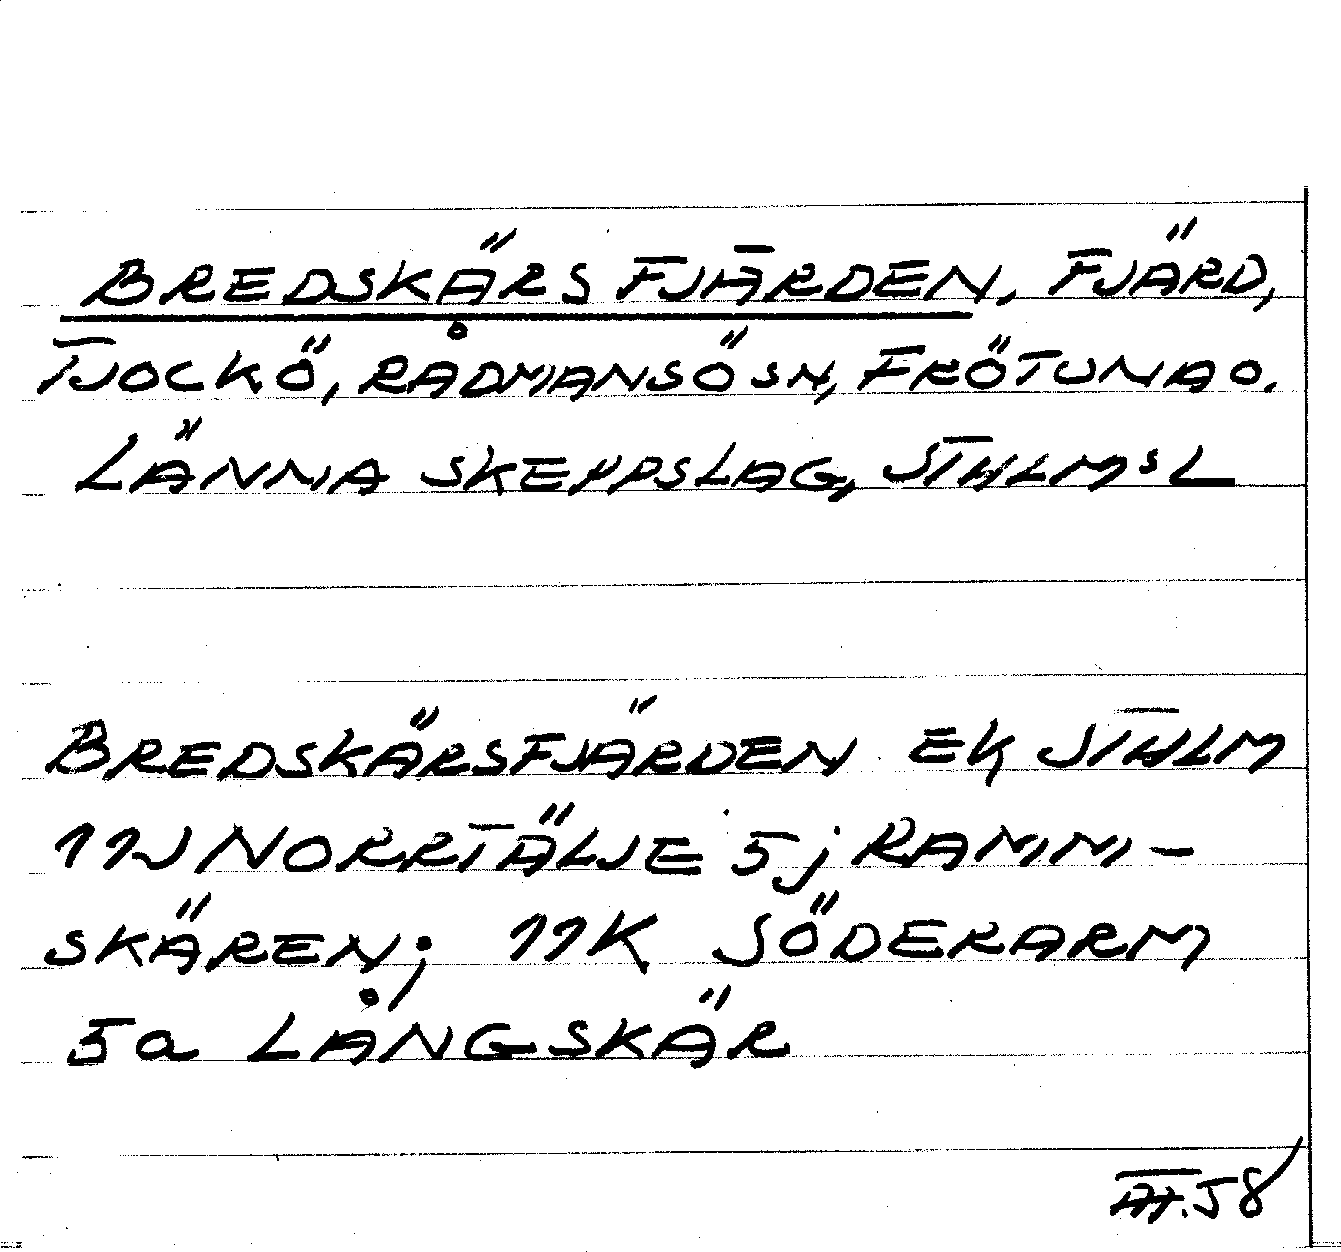 BREDSKÄRS FJÄRDEN, FJÄRD,
TJOCKÖ, RÅDMANSÖ SN, FRÖTUNA O.
LÄNNA SKEPPSLAG, STHLMS L
BREDSKÄRSFJÄRDEN EK STHLM
11J NORRTÄLJE 5j RAMM-
SKÄREN; 11K SÖDERARM
5a LÅNGSKÄR
58